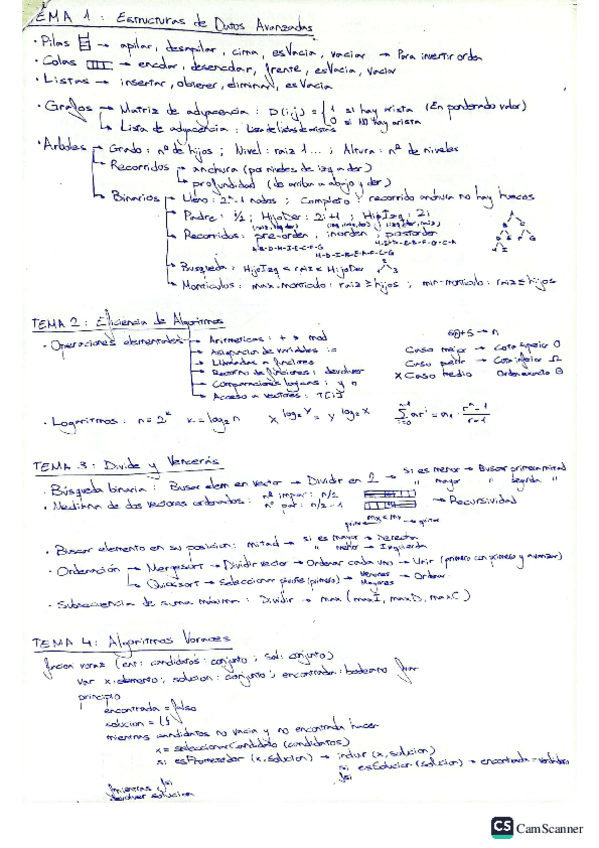 EMA 1: Estructuras de Datos Avanzadas
· Pilas → apilar, desapilar, cima, esVacia, vaciar → Para invertir orden
· Colas → encolar, desencolar, frente, esVacia, vaciar
· Listas → insertar, obtener, eliminar, esVacia
· Grafos → Matriz de adyacencia: D(i,j) = { 1 si hay arista (En ponderado valor)
0 si NO hay arista
→ Lista de adyacencia: Lista de listas de aristas
· Arboles → Grado: nº de hijos; Nivel: raiz 1...; Altura: nº de niveles
→ Recorridos → anchura (por niveles de izq a der)
→ profundidad (de arriba a abajo y der)
→ Binarios → Lleno: nodos; Completo: recorrido anchura no hay huecos
→ Padre: i/2; HijoDer: 2i+1; HijoIzq: 2i
→ Recorridos: pre-orden, inorden, postorden
A-B-D-H-I-E-C-F-G
→ Busqueda: HijoIzq < raiz < HijoDer
→ Monticulos: max-monticulo: raiz ≥ hijos; min-monticulo: raiz ≤ hijos
TEMA 2: Eficiencia de Algoritmos
· Operaciones elementales → Aritmeticas: + * mod
→ Asignacion de variables :=
→ Llamadas a funciones
→ Retorno de funciones: devolver
→ Comparaciones logicas: y o
→ Acceso a vectores: T[i]
6n+5 → n
Caso mejor → Cota inferior Ω
X Caso medio → Orden exacto Θ
· Logaritmos: n=2^k k=log₂n x^log₂y = y^log₂x
TEMA 3: Divide y Vencerás
· Búsqueda binaria: Buscar elem en vector → Dividir en 2 → si es menor → Buscar primera mitad
" mayor " segunda "
· Mediana de dos vectores ordenados: nº impar: n/2
nº par: n/2 - 1 → Recursividad
· Buscar elemento en su posicion: mitad → si es mayor → Derecha
" menor → Izquierda
· Ordenación → Mergesort → Dividir vector → Ordenar cada uno → Unir (primero con primero y avanzar)
→ Quicksort → Seleccionar pivote (primero) → Menores Mayores → Ordenar
· Subsecuencia de suma máxima: Dividir → max (maxI, maxD, maxC)
TEMA 4: Algoritmos Voraces
funcion voraz (ent: candidatos: conjunto; sol: conjunto)
var x: elemento; solucion: conjunto; encontrada: booleano fvar
principio
encontrada = falso
solucion = {∅}
mientras candidatos no vacia y no encontrada hacer
x = seleccionarCandidato (candidatos)
si esPrometedor (x, solucion) → incluir (x, solucion)
si esSolucion (solucion) → encontrada = verdadero
fsi
fsi
fmientras
devolver solucion
CS CamScanner